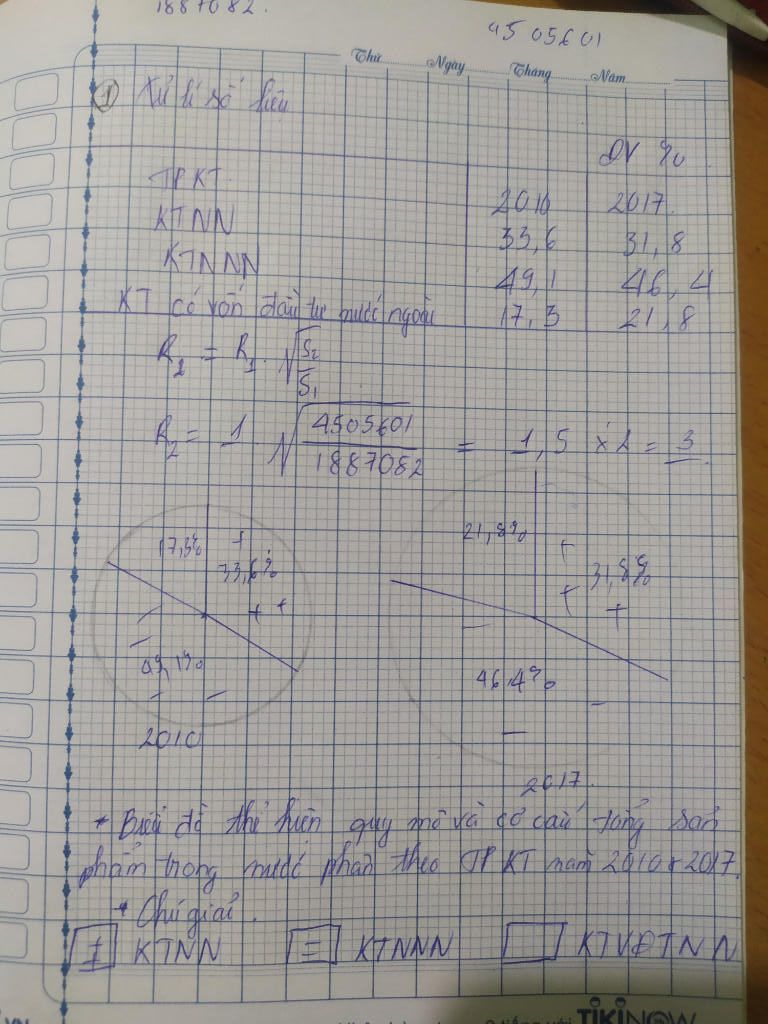 1887082.
4505601
Thứ Ngày Tháng Năm
① Xử lí số liệu
ĐV %
TPKT 2010 2017.
KTNN 33,6 31,8
KTNNN 49,1 46,4
KT có vốn đầu tư nước ngoài 17,3 21,8
R2 = R1 . √S2/S1
R2 = 1 . √4505601/1887082 = 1,5 x 2 = 3
17,3% + 33,6% + +
49,1%
2010
21,8% + 31,8% + +
46,4%
2017.
* Biểu đồ thể hiện quy mô và cơ cấu tổng sản
phẩm trong nước phân theo TPKT năm 2010 & 2017.
* Chú giải.
KTNN KTNNN KTVĐTNN
TIKINOW